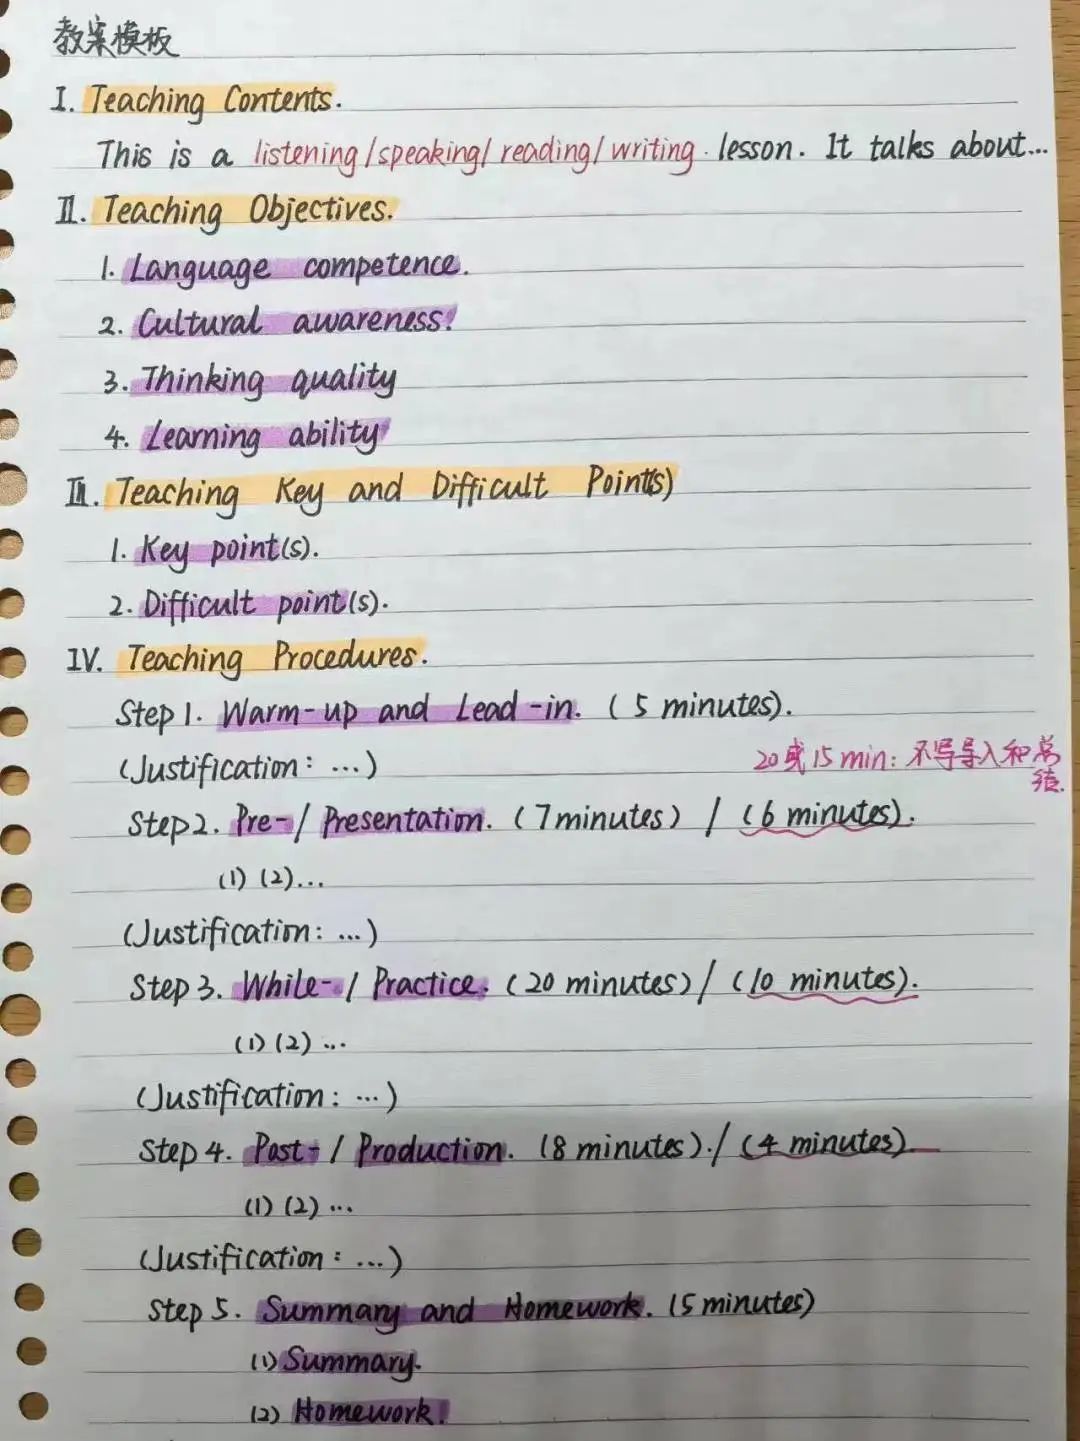 教案模板
I. Teaching Contents.
This is a listening/speaking/reading/writing. lesson. It talks about...
II. Teaching Objectives.
1. Language competence.
2. Cultural awareness.
3. Thinking quality
4. Learning ability
III. Teaching Key and Difficult Point(s)
1. Key point(s).
2. Difficult point(s).
IV. Teaching Procedures.
Step 1. Warm-up and Lead-in. (5 minutes).
(Justification: ...)
20或15min: 不写导入和总结.
Step 2. Pre-/Presentation. (7minutes) / (6 minutes).
(1) (2)...
(Justification: ...)
Step 3. While-/Practice. (20 minutes) / (10 minutes).
(1) (2) ...
(Justification: ...)
Step 4. Post-/Production. (8 minutes)./(4 minutes).
(1) (2) ...
(Justification: ...)
Step 5. Summary and Homework. (5 minutes)
(1) Summary.
(2) Homework.